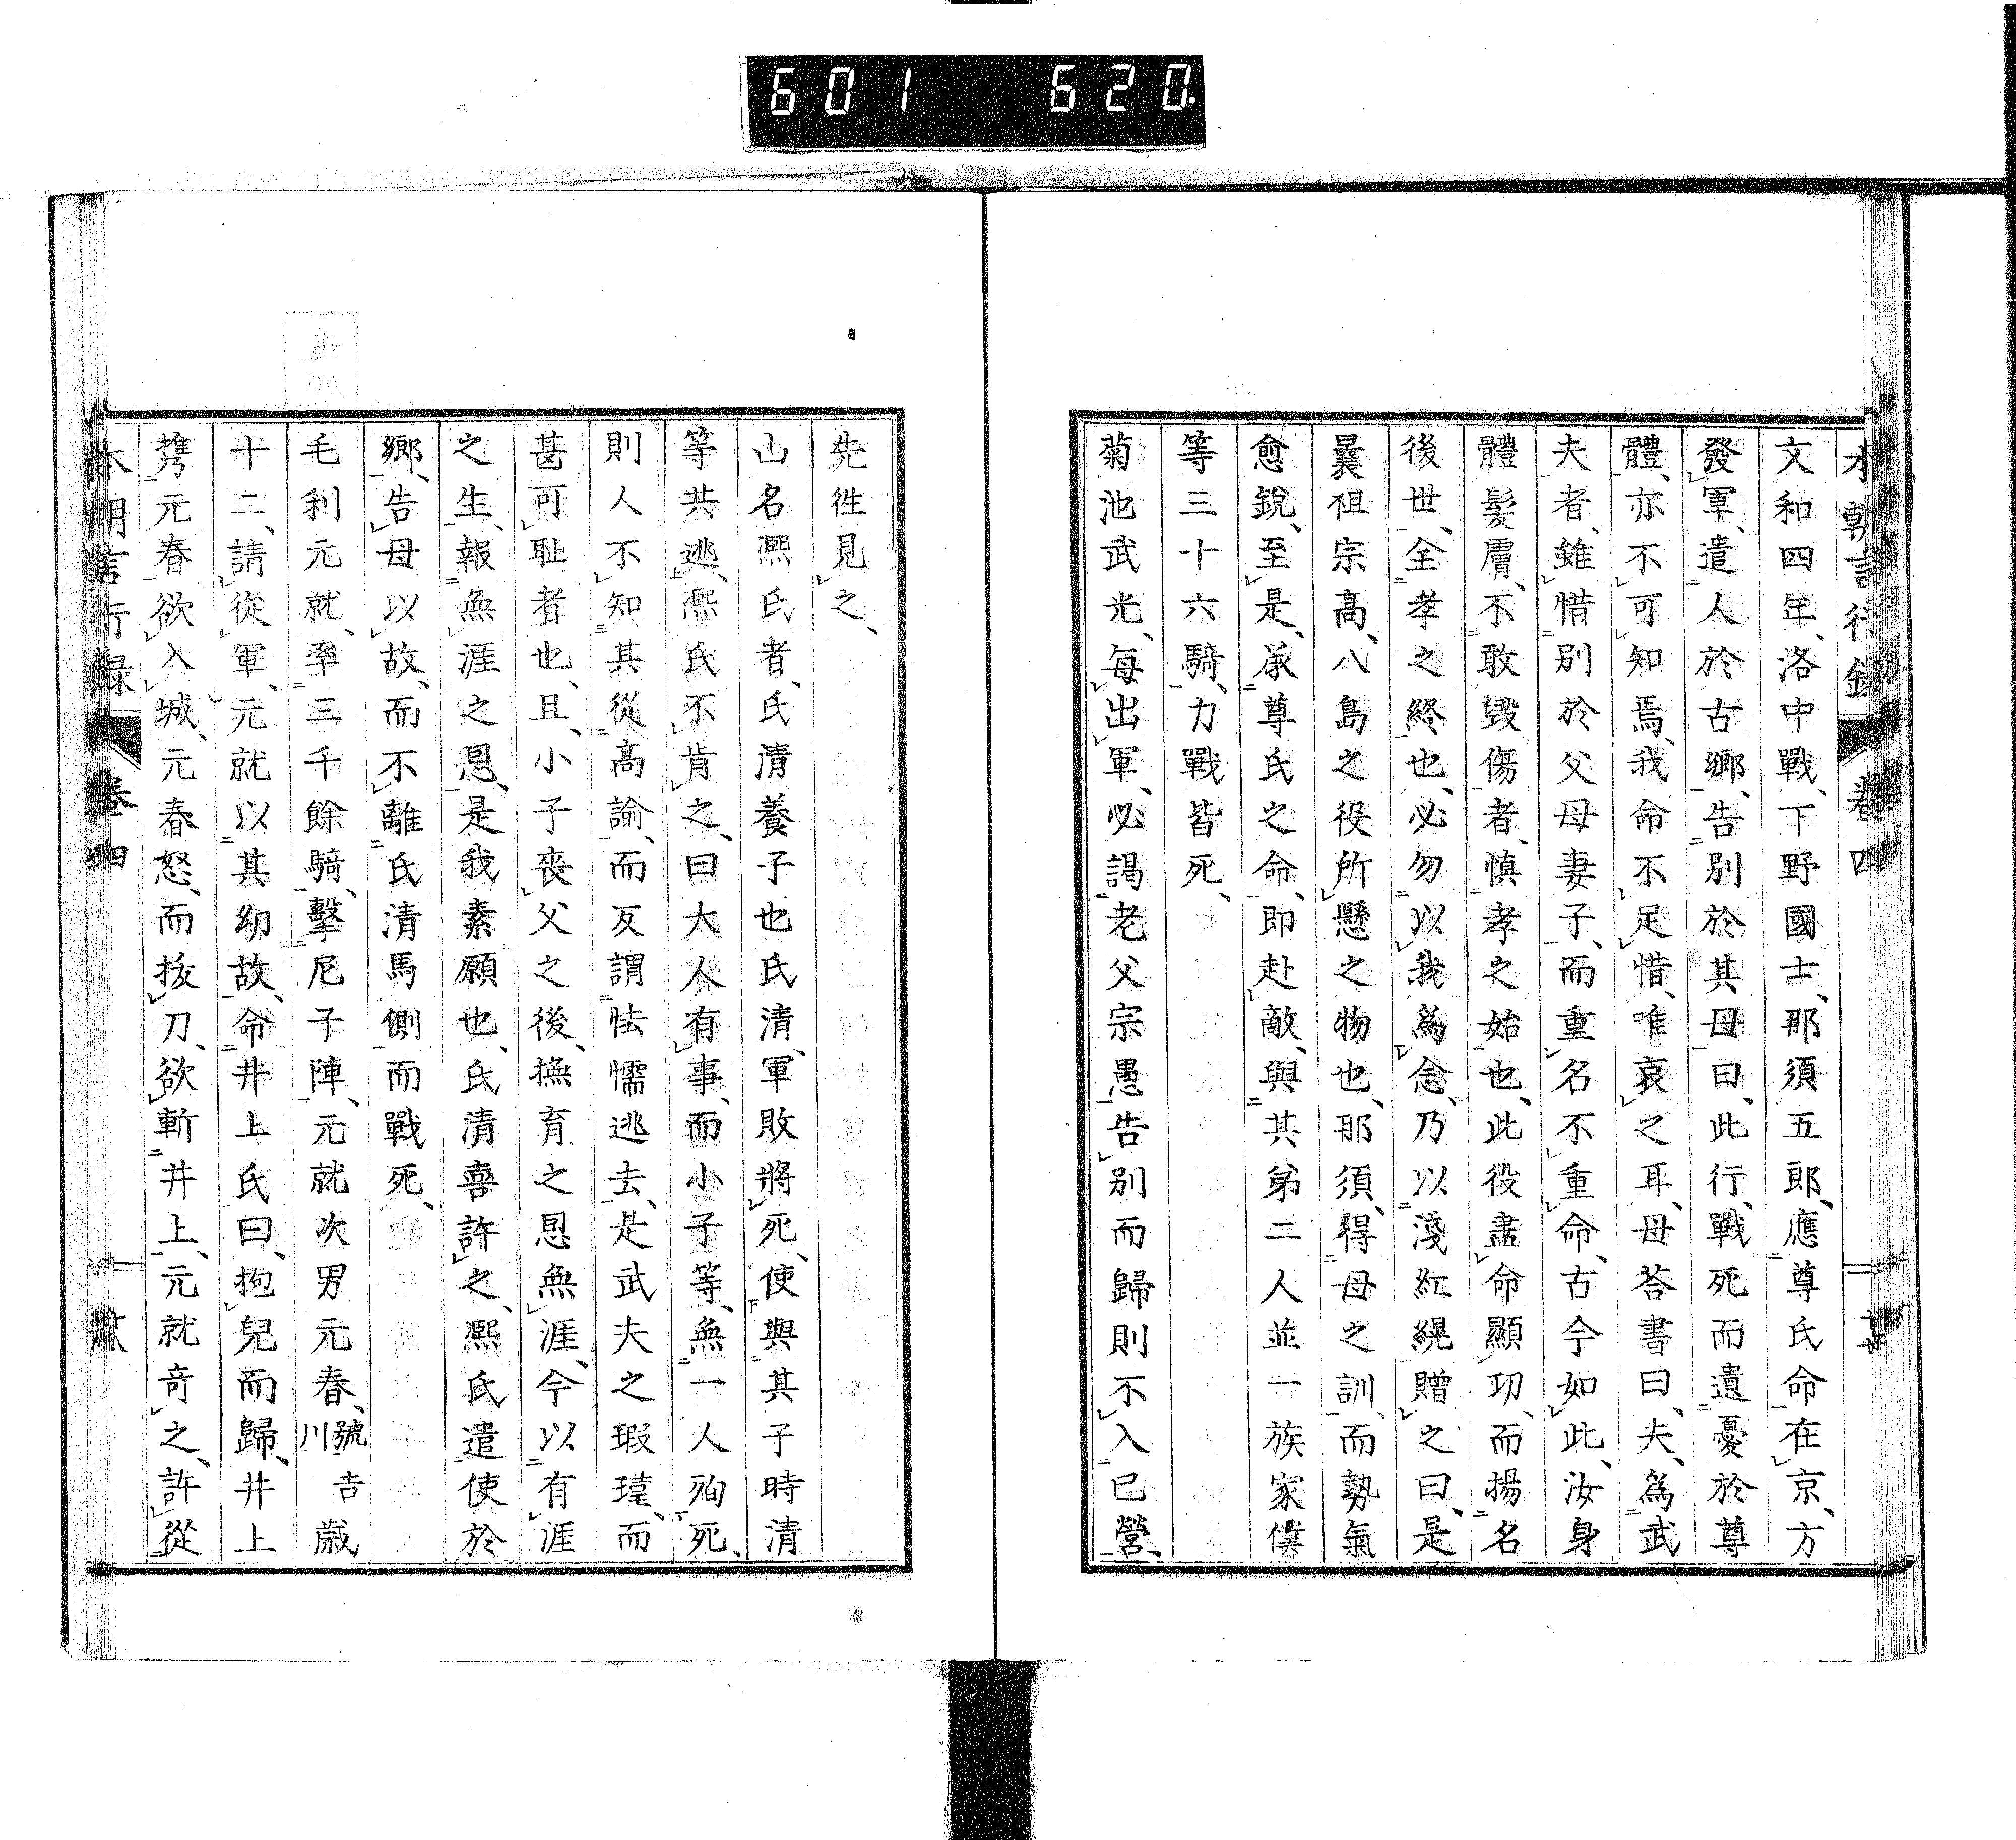 601 620
本朝言行録 卷四
文和四年、洛中戰、下野國士、那須五郎、應尊氏命在京、方
發軍、遣人於古鄉、告別於其母曰、此行、戰死而遺憂於尊
體、亦不可知焉、我命不足惜、唯哀之耳、母荅書曰、夫、爲武
夫者、雖惜別於父母妻子、而重名不重命、古今如此、汝身
體髮膚、不敢毀傷者、慎孝之始也、此役盡命顯功、而揚名
後世、全孝之終也、必勿以我爲念、乃以淺紅縨贈之曰、是
曩祖宗髙、八島之役所懸之物也、那須、得母之訓、而勢氣
愈銳、至是、承尊氏之命、即赴敵、與其弟二人並一族家僕
等三十六騎、力戰皆死、
菊池武光、每出軍、必謁老父宗愚告別而歸則不入已營、
先徃見之、
山名熈氏者、氏清養子也氏清、軍敗將死、使與其子時清
等共逃、熈氏不肯之、曰大人有事、而小子等、無一人殉死、
則人不知其從髙諭、而反謂怯懦逃去、是武夫之瑕瑾、而
甚可耻者也、且、小子喪父之後、撫育之恩無涯、今以有涯
之生、報無涯之恩、是我素願也、氏清喜許之、熈氏遣使於
鄉、告母以故、而不離氏清馬側而戰死、
毛利元就、率三千餘騎、擊尼子陣、元就次男元春、號吉川歲
十二、請從軍、元就以其幼故、命井上氏曰、抱兒而歸、井上
携元春欲入城、元春怒、而拔刀、欲斬井上、元就奇之、許從
本朝言行録 卷四